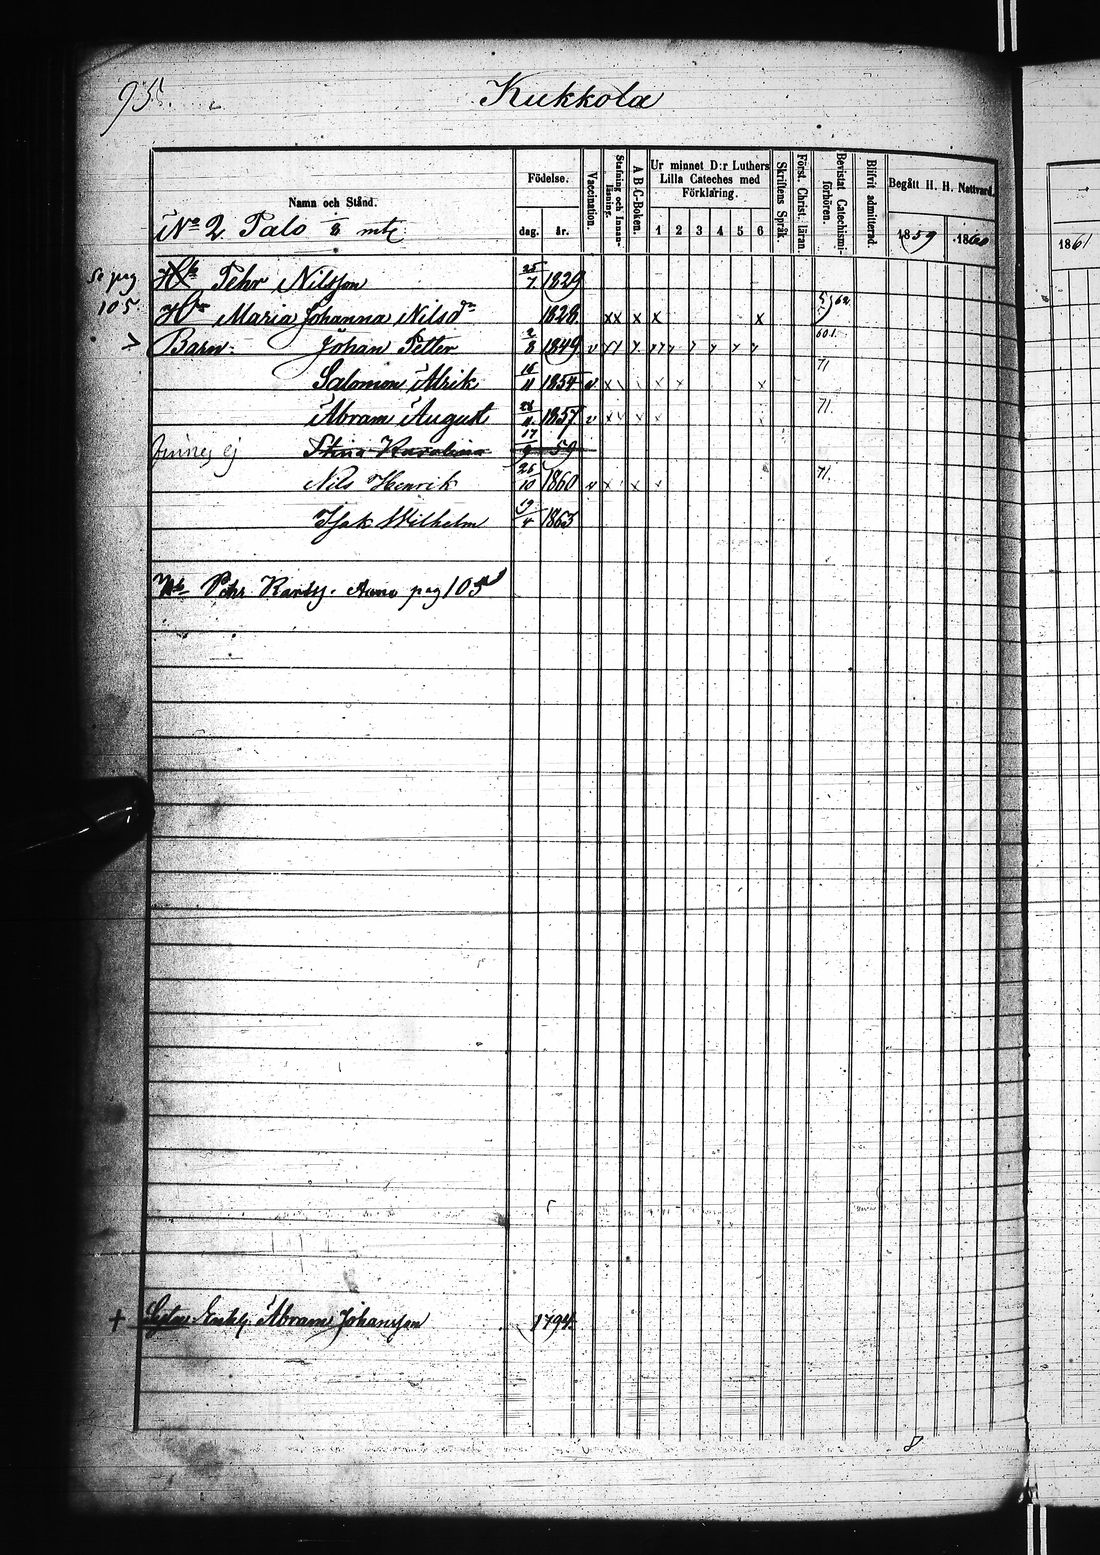 95.
Kukkola
Namn och Stånd.
Födelse.
dag.
år.
Vaccination.
Stafning och Innanläsning.
A B C-Boken.
Ur minnet D:r Luthers Lilla Cateches med Förklaring.
1 2 3 4 5 6
Skriftens Språk.
Först. Christ. läran.
Bevistat Catechismiförhören.
Blifvit admitterad.
Begått H. H. Nattvard.
1859 1860
1861
No 2 Talo 1/8 mtl
Se pag 105.
Pehr Nilsson 25/7 1829
Maria Johanna Nilsd:r 1828 x x x x x 5/9 62
> Barn: Johan Petter 2/8 1849 v 60 1.
Salomon Alrik 16/11 1854 v x 71
Abram August 28/11 1857 v x x x x 71.
finnes ej Stina Karolina 17/9 59
Nils Henrik 25/10 1860 v x x x 71.
Isak Wilhelm 19/4 1863
Pehr pag 105
+ Abram Johansson 1794
8